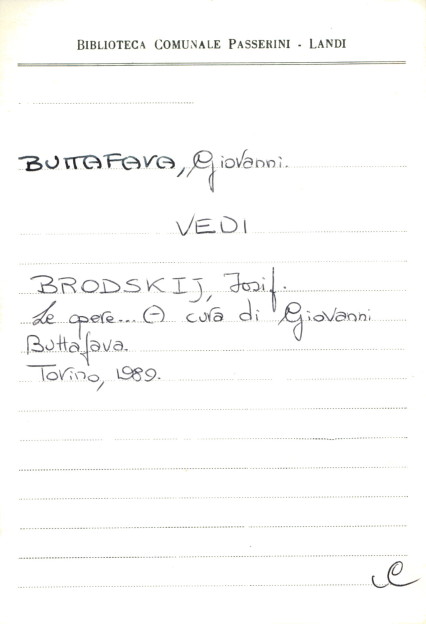 BIBLIOTECA COMUNALE PASSERINI - LANDI
BUTTAFAVA, Giovanni.
VEDI
BRODSKIJ, Josif.
Le opere... (-) cura di Giovanni
Buttafava.
Torino, 1989.
C